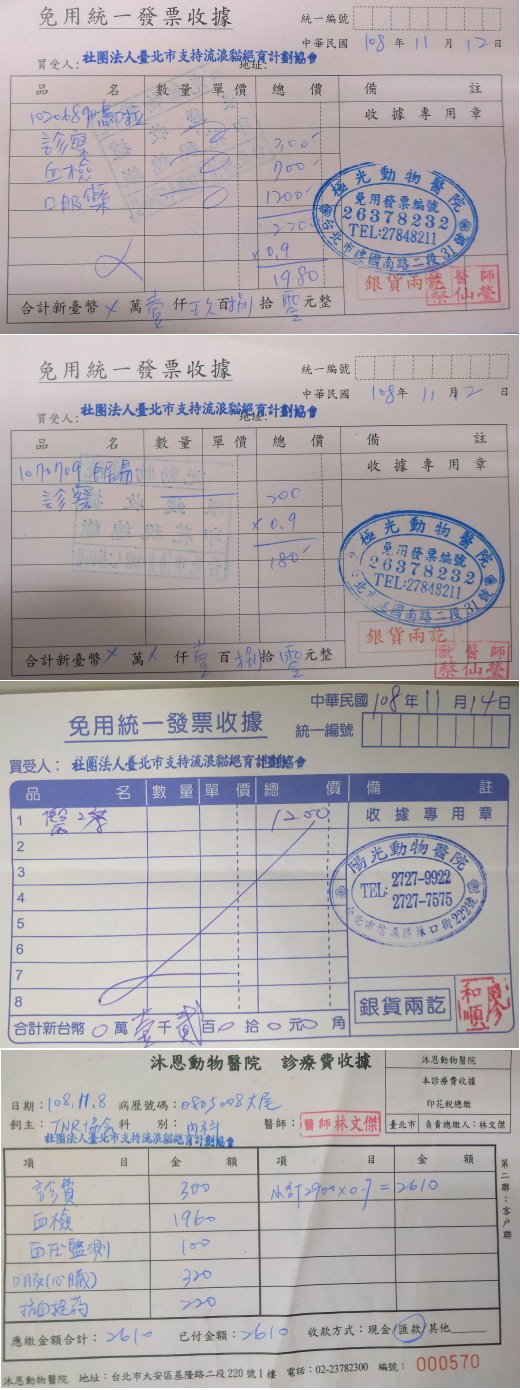 免用統一發票收據
統一編號
中華民國 108 年 11 月 12 日
買受人: 社團法人臺北市支持流浪貓絕育計劃協會 地址:
品 名 數量 單價 總價 備註
收據專用章
診察 300
血檢 700
口服藥 1200
×0.9
1980
極光動物醫院
免用發票編號
26378232
TEL:27848211
台北市建國南路二段31號
銀貨兩訖
獸醫師
蔡仙瑩
合計新臺幣 × 萬 壹 仟 玖 百 捌 拾 零 元整
免用統一發票收據
統一編號
中華民國 108 年 11 月 2 日
買受人: 社團法人臺北市支持流浪貓絕育計劃協會 地址:
品 名 數量 單價 總價 備註
收據專用章
1070709
診察 200
×0.9
180
極光動物醫院
免用發票編號
26378232
TEL:27848211
台北市建國南路二段31號
銀貨兩訖
獸醫師
蔡仙瑩
合計新臺幣 × 萬 × 仟 壹 百 捌 拾 零 元整
中華民國 108 年 11 月 14 日
免用統一發票收據
統一編號
買受人: 社團法人臺北市支持流浪貓絕育計劃協會
品 名 數量 單價 總價 備註
1 醫療 1200
收據專用章
2
3
4
5
6
7
8
陽光動物醫院
TEL: 2727-9922
2727-7575
台北市信義區林口街222號
銀貨兩訖
合計新台幣 0 萬 壹 千 貳 百 0 拾 0 元 0 角
沐恩動物醫院 診療費收據
沐恩動物醫院
本診療費收據
印花稅總繳
臺北市 負責總繳人:林文傑
日期: 108.11.8 病歷號碼: 0805008 大尾
飼主: TNR協會 科別: 內科 醫師: 醫師林文傑
社團法人臺北市支持流浪貓絕育計劃協會
項目 金額 項目 金額
診費 300 小計2900×0.9=2610
血檢 1960
血压監測 100
口服(心臟) 320
抗血栓葯 220
第二聯:客戶聯
應繳金額合計: 2610 已付金額: 2610 收款方式:現金/匯款/其他
沐恩動物醫院 地址:台北市大安區基隆路二段220號1樓 電話:02-23782300 編號: 000570